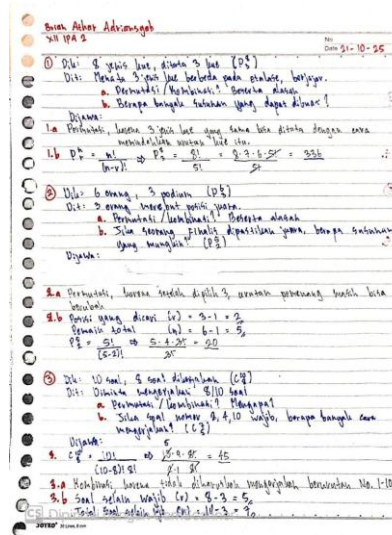 Brian Athor Adriansyah
XII IPA 2
No
Date 21-10-25
① Dik: 8 jenis kue, ditata 3 kue (P⁸₃)
Dit: Menata 3 jenis kue berbeda pada etalase, berjajar.
a. Permutasi/Kombinasi? Beserta alasan
b. Berapa banyak susunan yang dapat dibuat?
Dijawab:
1.a Permutasi, karena 3 jenis kue yang sama bisa ditata dengan cara
memindahkan urutan kue itu.
1.b Pⁿᵣ = n!/(n-r)! ⇒ P⁸₃ = 8!/5! = 8·7·6·5!/5! = 336
② Dik: 6 orang, 3 podium (P⁶₃)
Dit: 3 orang merebut posisi juara.
a. Permutasi/kombinasi? Beserta alasan
b. Jika seorang finalis dipastikan juara, berapa susunan
yang mungkin? (P⁵₂)
Dijawab:
2.a Permutasi, karena setelah dipilih 3, urutan pemenang masih bisa
berubah
2.b Posisi yang dicari (r) = 3-1 = 2
Pemain total (n) = 6-1 = 5
P⁵₂ = 5!/(5-2)! ⇒ 5·4·3!/3! = 20
③ Dik: 10 soal, 8 soal dikerjakan (C¹⁰₈)
Dit: Diminta mengerjakan 8/10 soal
a. Permutasi/kombinasi? Mengapa?
b. Jika soal nomor 8, 4, 10 wajib, berapa banyak cara
mengerjakan? (C⁷₅)
Dijawab:
3. C¹⁰₈ = 10!/(10-8)! 8! ⇒ 10·9·8!/2·1 8! = 45
3.a Kombinasi, karena tidak diharuskan mengerjakan berurutan No. 1-10
3.b Soal selain wajib (r) = 8-3 = 5
Total soal selain wjb (n) = 10-3 = 7
CS
JOYKO